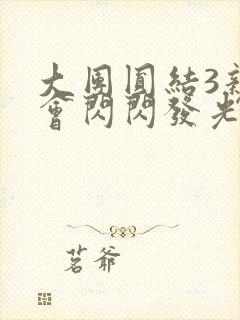 大團圓結3新
會閃閃發光
茗爺